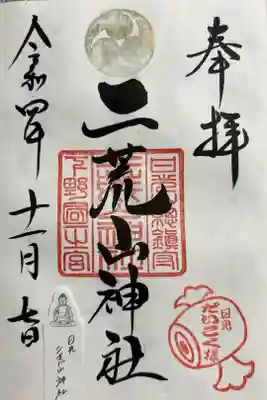 奉拝
二荒山神社
日光総鎮守
下野国一之宮
令和四年十一月七日
日光
だいこく様
日光
二荒山神社